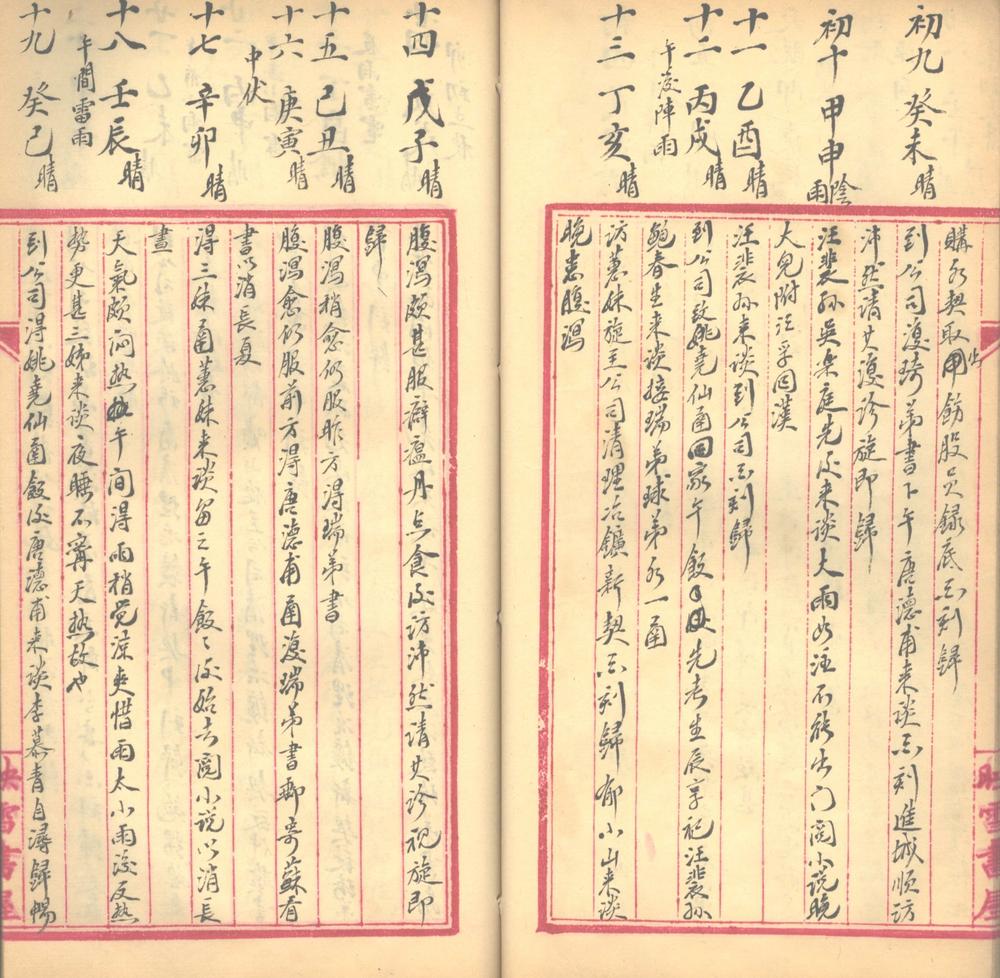 初九 癸未 晴
初十 甲申 陰雨
十一 乙酉 晴
十二 丙戌 晴
午後陣雨
十三 丁亥 晴
購 契取 飭股員錄底 刻歸
到公司復琦弟書下午唐德甫來談 刻進城順訪
沛然請其 診旋即歸
汪裴孫吳 庭先後來談大雨如注不能出門閱小說晚
大兒附江孚回漢
汪裴孫來談到公司 刻歸
到公司致姚堯仙函回家午飯 先考生辰享祀汪裴孫
鮑春生來談接瑞弟球弟 一函
訪蕙妹旋至公司清理冶鑛新契 刻歸郁小山來談
晚患腹瀉
十四 戊子 晴
十五 己丑 晴
十六 庚寅 晴
中伏
十七 辛卯 晴
十八 壬辰 晴
午間雷雨
十九 癸巳 晴
腹瀉頗甚服癖瘟丹 食後訪沛然請其診視旋即
歸
腹瀉稍愈仍服昨方得瑞弟書
腹瀉愈仍服前方得唐德甫函復瑞弟書 寄蘇看
書以消長夏
得三妹函蕙妹來談留之午飯飯後始去閱小說以消長
晝
天氣頗悶熱 午間得雨稍覺涼爽惜雨太小雨後反熱
勢更甚三姊來談夜睡不寧天熱故也
到公司得姚堯仙函飯後唐德甫來談李慕青自潯歸暢
映雪書屋
映雪書屋